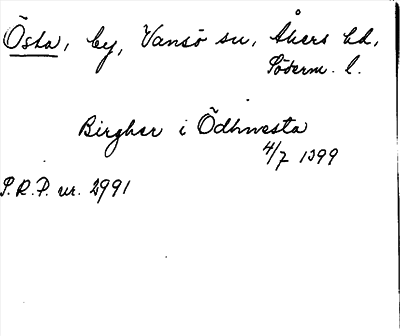 Östa, by, Vansö sn, Åkers hd,
Söderm. l.
Birgher i Ödhwesta
4/7 1399
P.R.P. nr. 2991